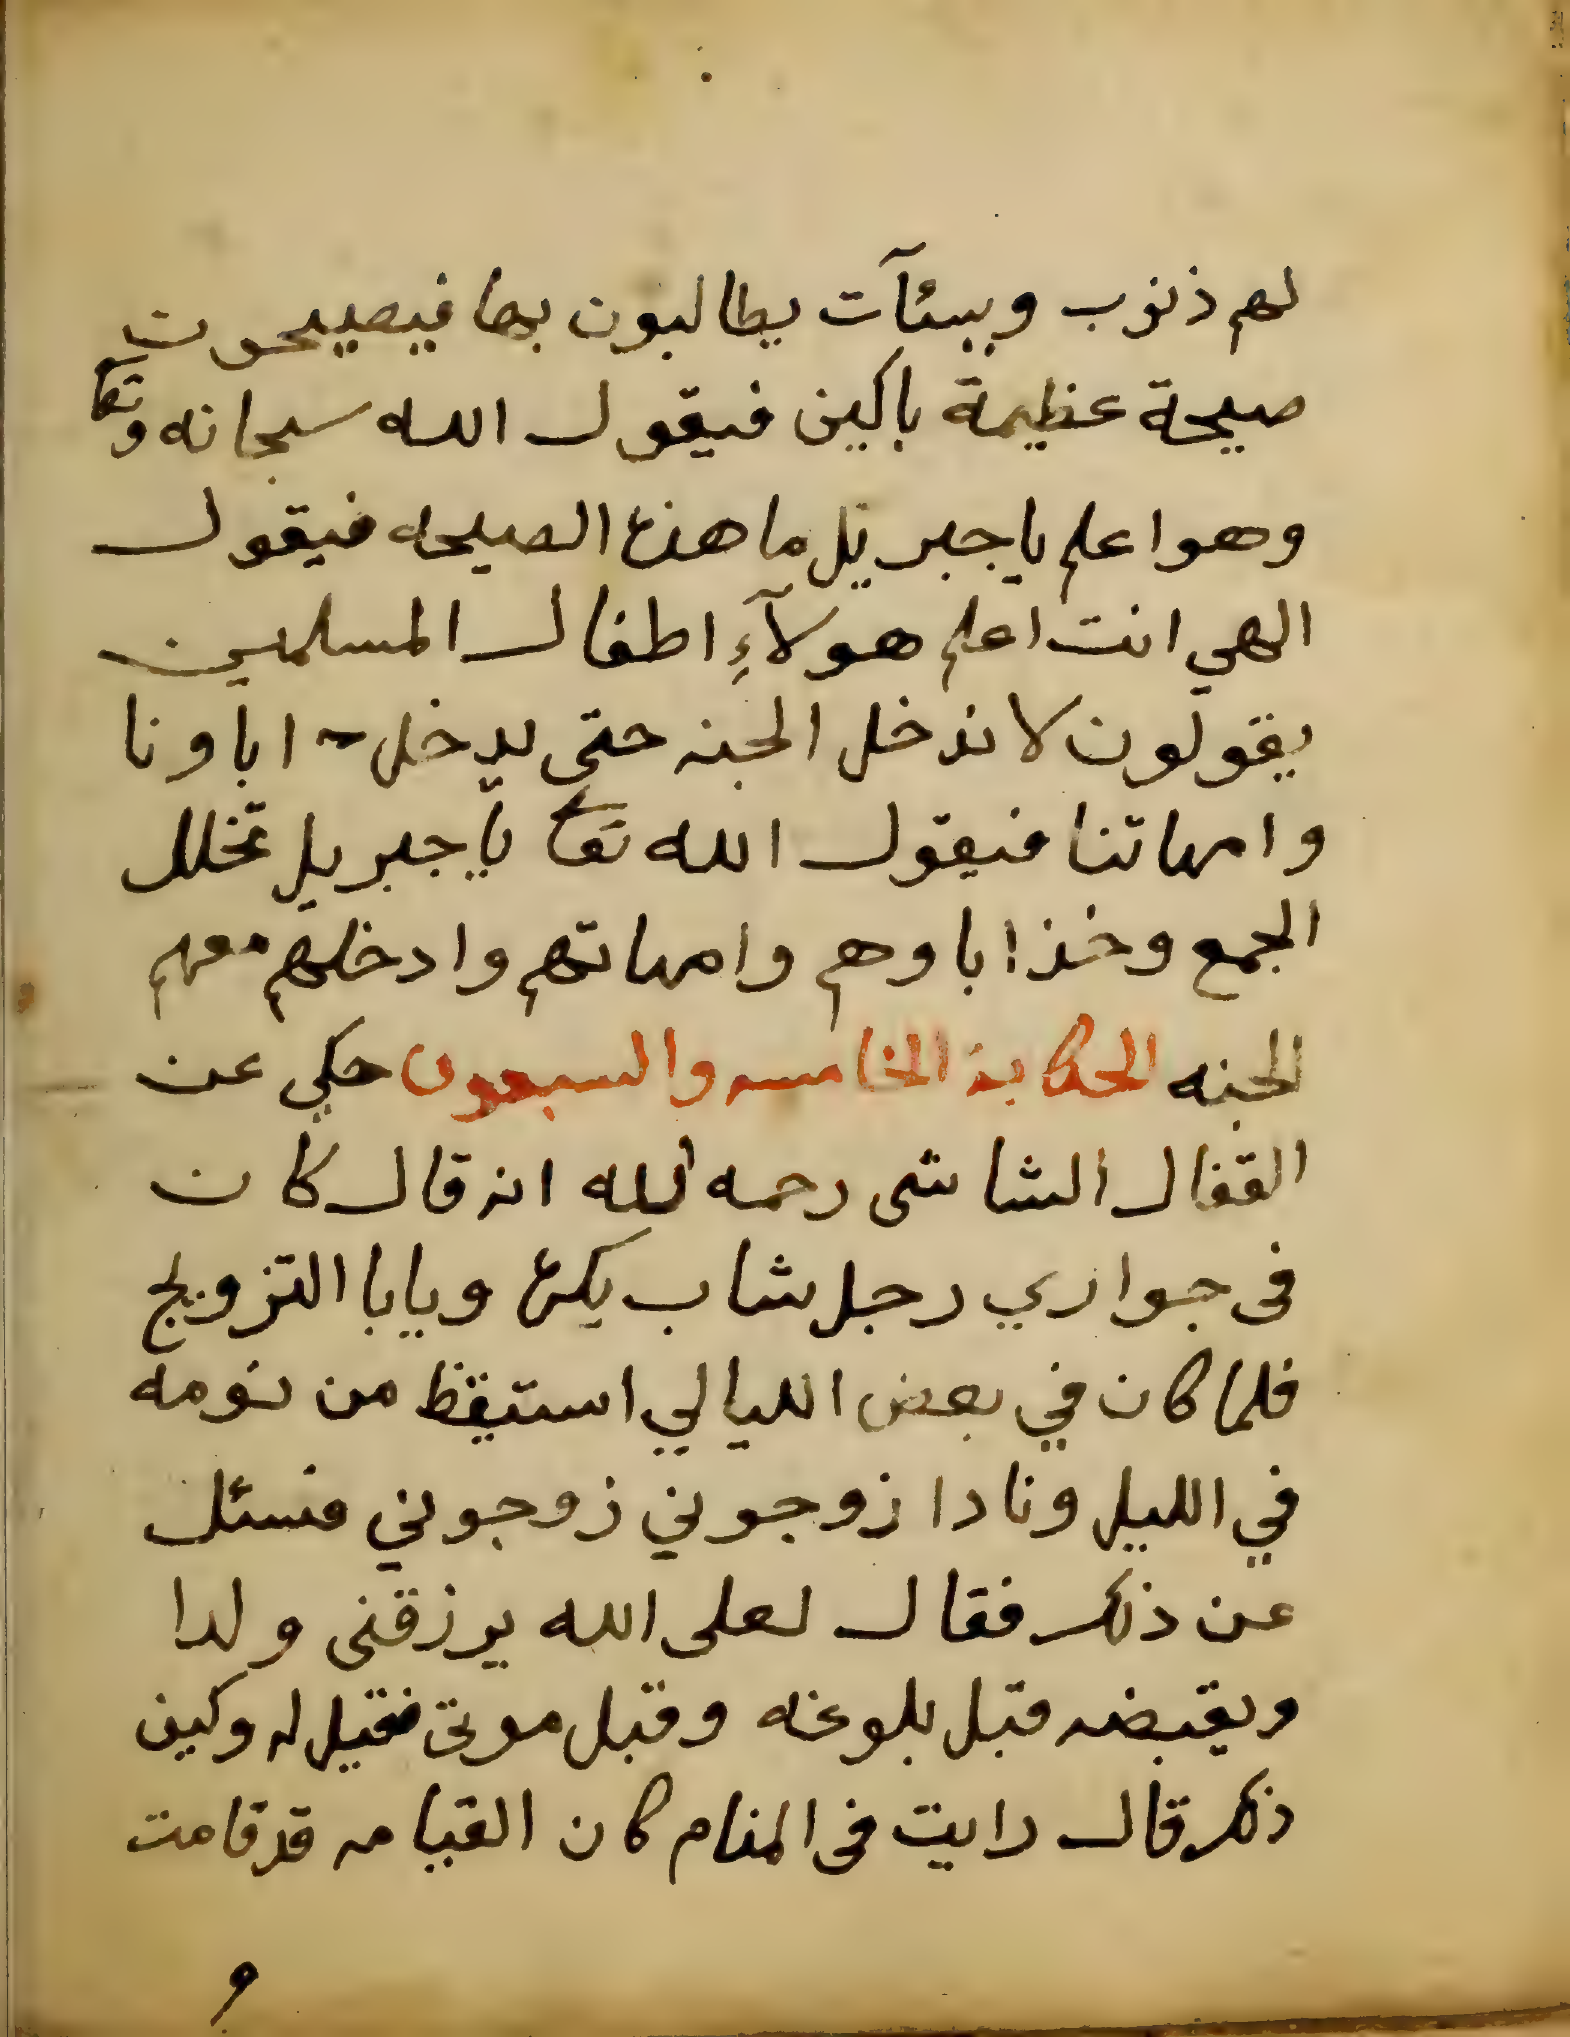 لهم ذنوب وسئآت يطالبون بها فيصيحون
صيحة عظيمة باكين فيقول الله سبحانه وتعا
وهو اعلم ياجبريل ما هذه الصيحه فيقول
الهي انت اعلم هولآءِ اطفال المسلمين
يقولون لا ندخل الجنه حتى يدخل اباونا
وامهاتنا فيقول الله تعا ياجبريل تخلل
الجمع وخذ اباوهم وامهاتهم وادخلهم معهم
الجنه الحكاية الخامسه والسبعون حكي عن
القفال الشاشى رحمه الله انه قال كان
فى جواري رجل شاب يكره ويابا التزويج
فلما كان في بعض الليالي استيقظ من نومه
في الليل ونادا زوجوني زوجوني فسئل
عن ذلك فقال لعلى الله يرزقنى ولدا
ويقبضه قبل بلوغه وقبل موتى فقيل له وكيف
ذلك قال رايت فى المنام كان القيامه قد قامت
و